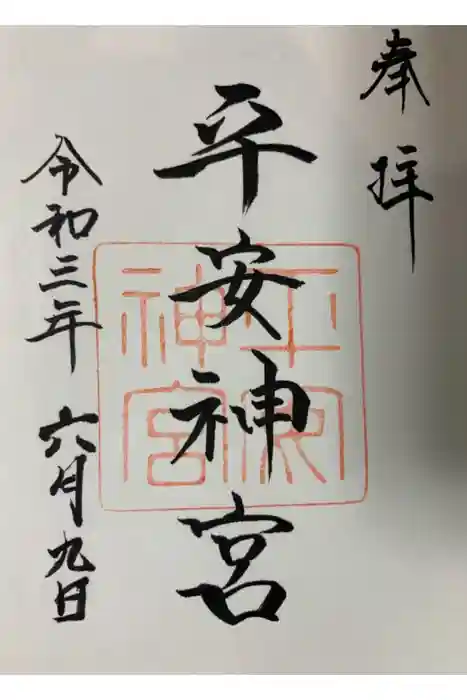 奉拝
平安神宮
令和三年六月九日
平安神宮